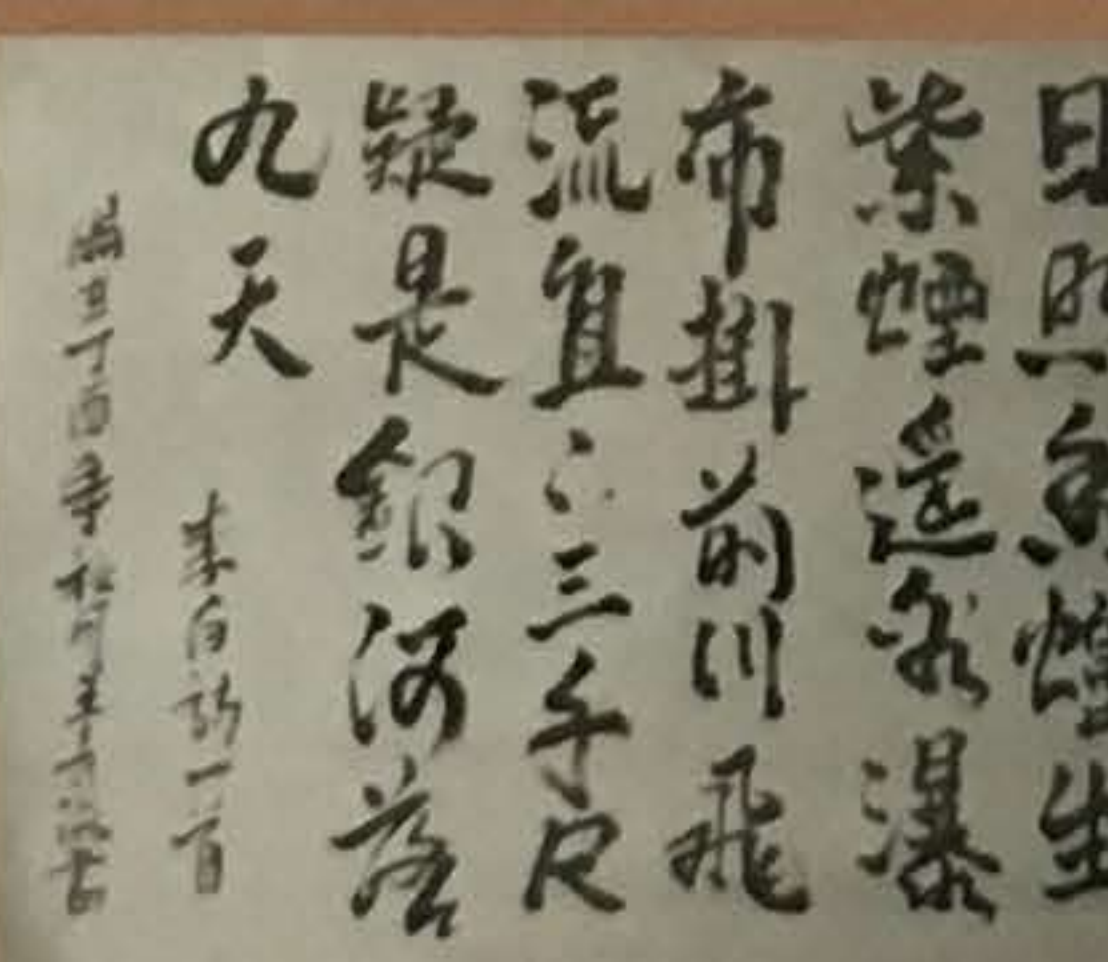 日照香爐生
紫煙遙看瀑
布掛前川飛
流直下三千尺
疑是銀河落
九天
李白詩一首
丁酉季